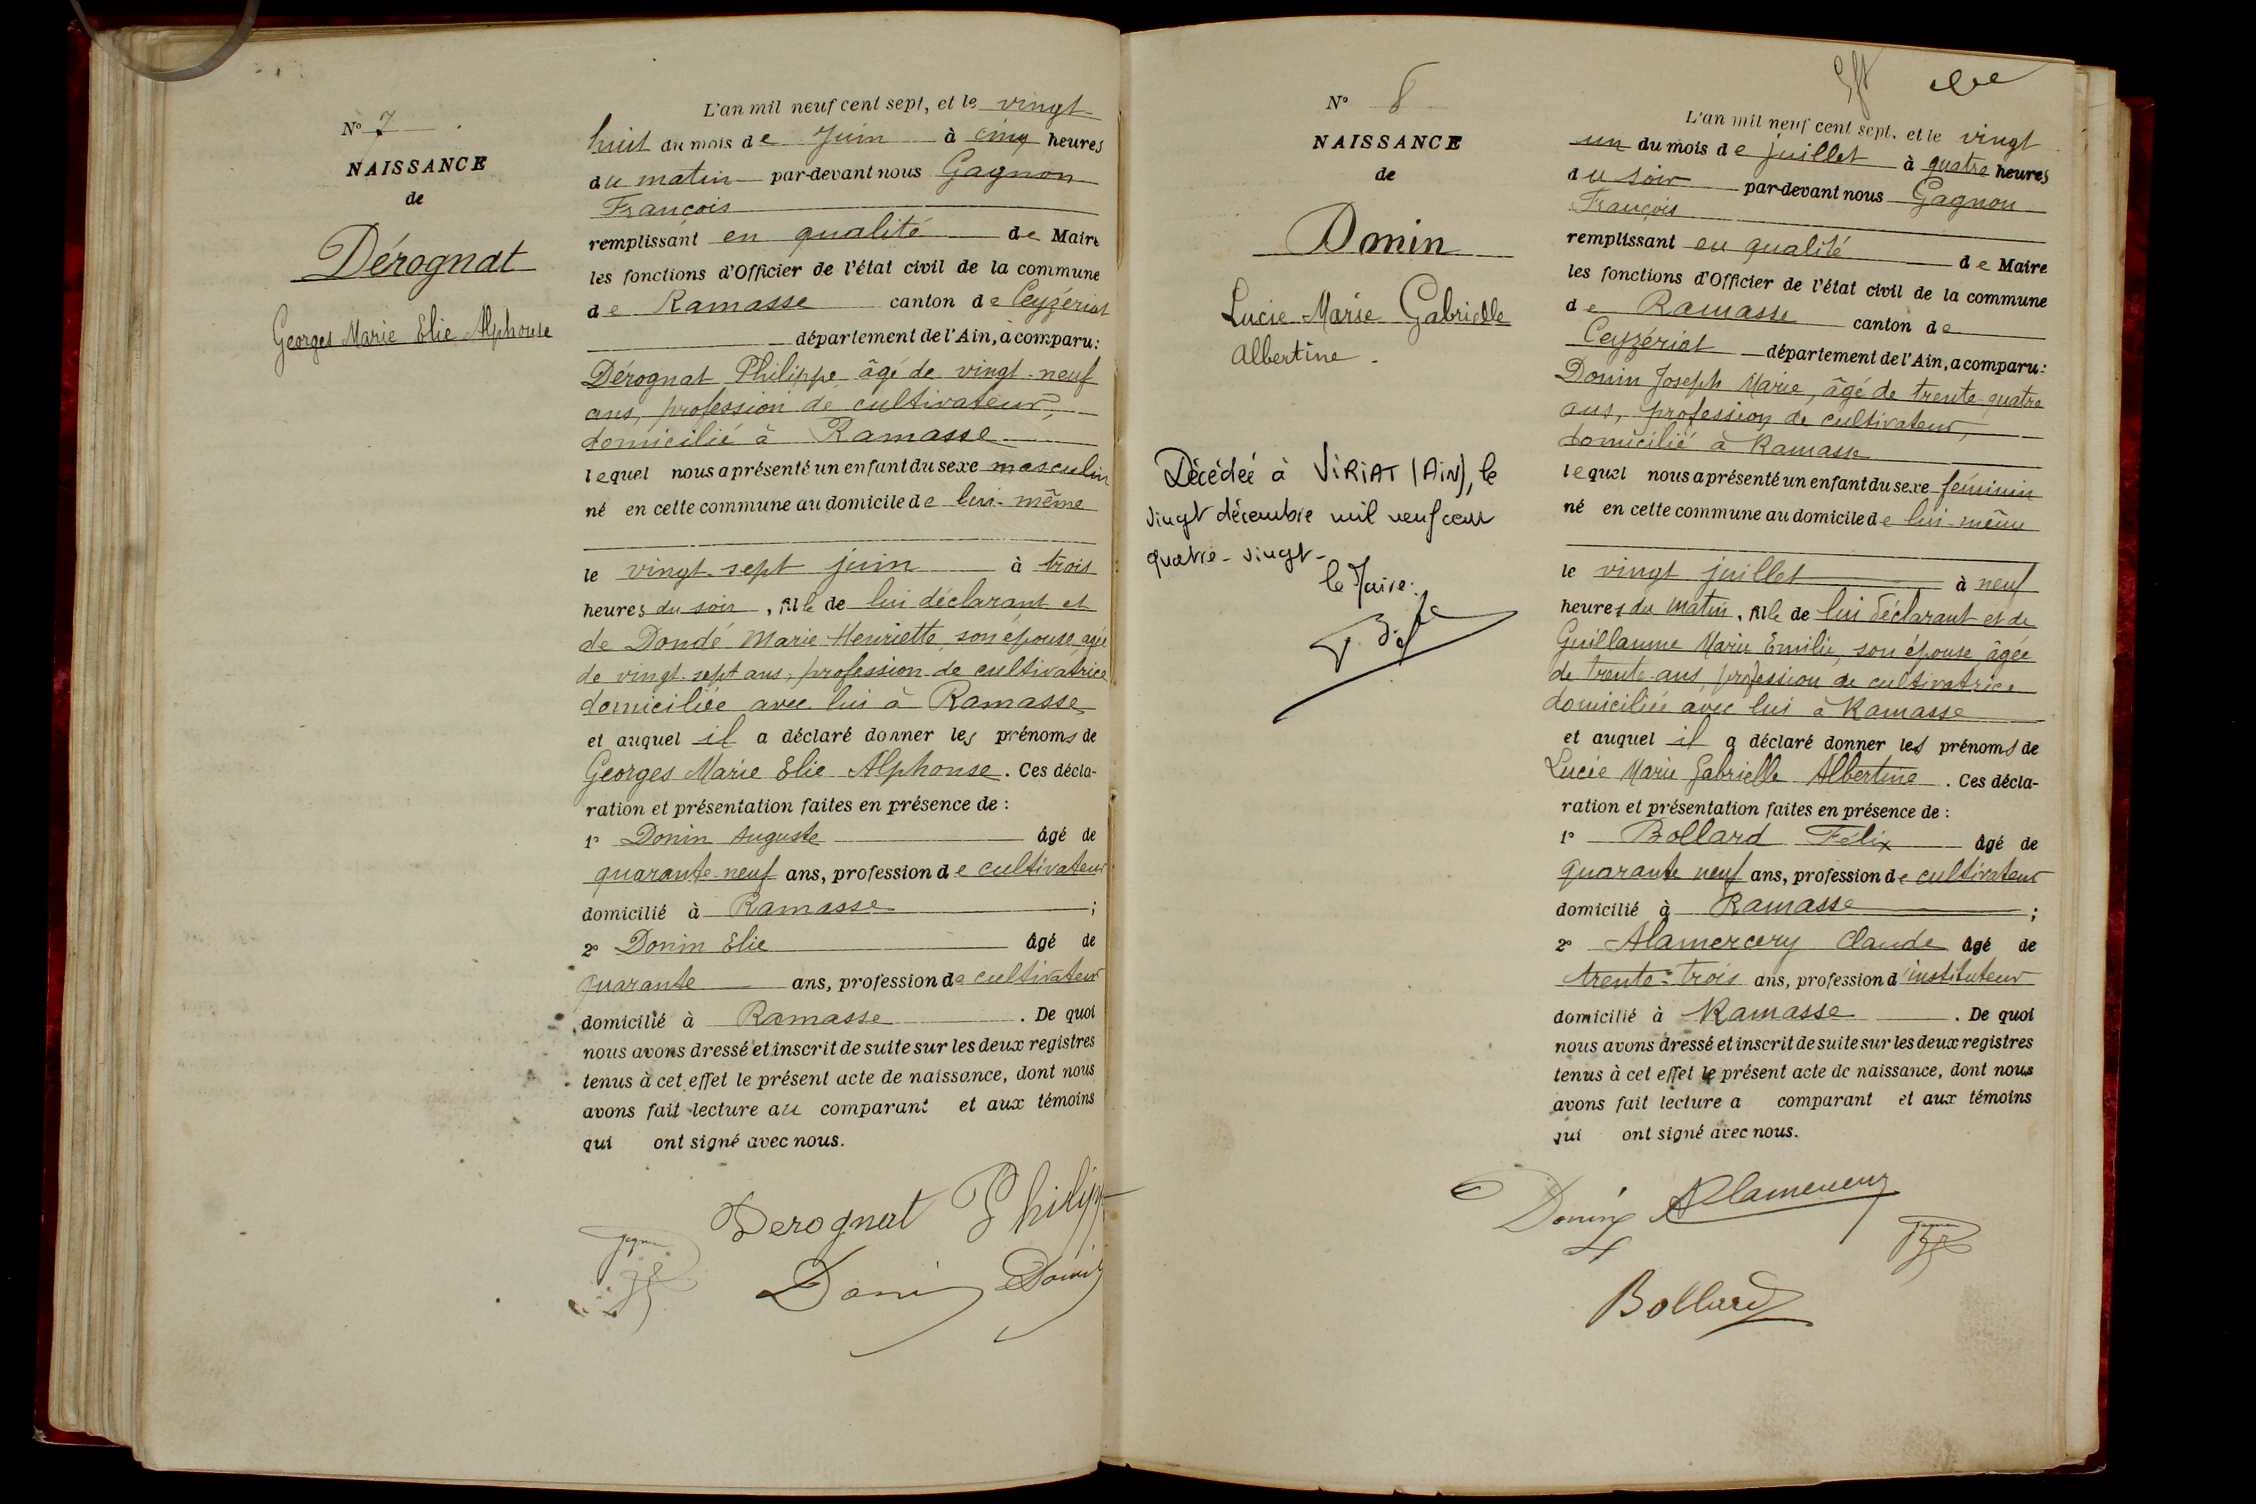 N° 7
NAISSANCE
de
Dérognat
Georges Marie Elie Alphonse
L'an mil neuf cent sept, et le vingt
huit du mois de Juin à cinq heures
du matin par-devant nous Gagnon
François
remplissant en qualité de Maire
les fonctions d'Officier de l'état civil de la commune
de Ramasse canton de Ceyzériat
département de l'Ain, a comparu:
Dérognat Philippe âgé de vingt-neuf
ans, profession de cultivateur,
domicilié à Ramasse
lequel nous a présenté un enfant du sexe masculin
né en cette commune au domicile de lui-même
le vingt-sept juin à trois
heures du soir, fils de lui déclarant et
de Dondé Marie-Henriette, son épouse, agée
de vingt-sept ans, profession de cultivatrice
domiciliée avec lui à Ramasse
et auquel il a déclaré donner les prénoms de
Georges Marie Elie Alphonse. Ces décla-
ration et présentation faites en présence de :
1° Donin Auguste âgé de
quarante-neuf ans, profession de cultivateur
domicilié à Ramasse ;
2° Donin Elie âgé de
quarante ans, profession de cultivateur
domicilié à Ramasse . De quoi
nous avons dressé et inscrit de suite sur les deux registres
tenus à cet effet le présent acte de naissance, dont nous
avons fait lecture au comparant et aux témoins
qui ont signé avec nous.
Derognat Philip
Donin EDonin
N° 8
NAISSANCE
de
Donin
Lucie Marie Gabrielle
Albertine.
Décédée à VIRIAT (AIN), le
vingt décembre mil neuf cent
quatre-vingt-
le Maire:
L'an mil neuf cent sept, et le vingt
un du mois de juillet à quatre heures
du soir par-devant nous Gagnon
François
remplissant en qualité de Maire
les fonctions d'Officier de l'état civil de la commune
de Ramasse canton de
Ceyzériat département de l'Ain, a comparu:
Donin Joseph Marie, âgé de trente-quatre
ans, profession de cultivateur,
domicilié à Ramasse
lequel nous a présenté un enfant du sexe féminin
né en cette commune au domicile de lui-même
le vingt juillet à neuf
heures du matin, fille de lui déclarant et de
Guillaume Marie Emilie, son épouse, âgée
de trente-ans, profession de cultivatrice
domiciliée avec lui à Ramasse
et auquel il a déclaré donner les prénoms de
Lucie Marie Gabrielle Albertine. Ces décla-
ration et présentation faites en présence de :
1° Bollard Félix âgé de
quarante neuf ans, profession de cultivateur
domicilié à Ramasse ;
2° Alamercery Claude âgé de
trente-trois ans, profession d'instituteur
domicilié à Ramasse . De quoi
nous avons dressé et inscrit de suite sur les deux registres
tenus à cet effet le présent acte de naissance, dont nous
avons fait lecture a comparant et aux témoins
qui ont signé avec nous.
Donin Alamercery
Gagnon
Bollard